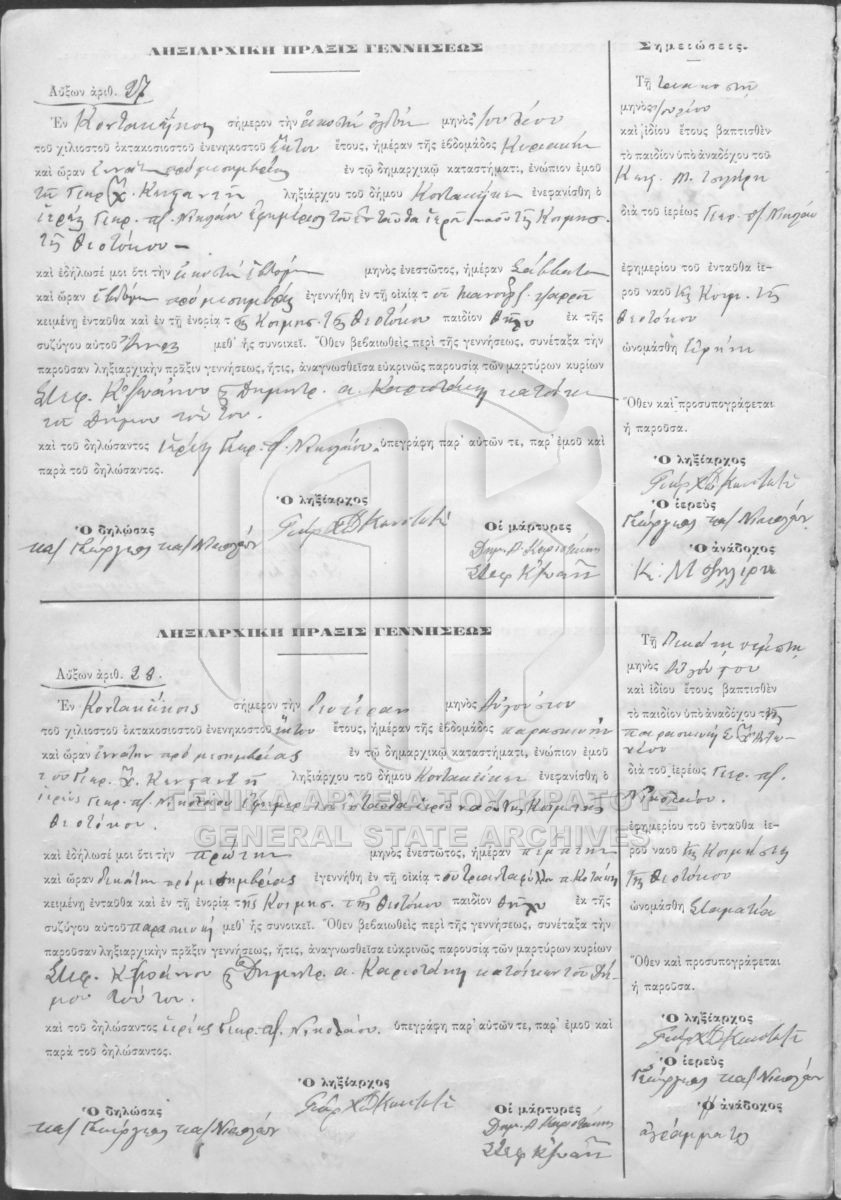 ΛΗΞΙΑΡΧΙΚΗ ΠΡΑΞΙΣ ΓΕΝΝΗΣΕΩΣ
Αὔξων ἀριθ. 27
Ἐν σήμερον τὴν εἰκοστὴν ὀγδόην μηνὸς Ἰουλίου
τοῦ χιλιοστοῦ ὀκτακοσιοστοῦ ἐνενηκοστοῦ ἕκτου ἔτους, ἡμέραν τῆς ἑβδομάδος Κυριακὴν
καὶ ὥραν ἐννάτην πρὸ μεσημβρίας ἐν τῷ δημαρχικῷ καταστήματι, ἐνώπιον ἐμοῦ
τοῦ Γεωρ. Χ. ληξιάρχου τοῦ δήμου ἐνεφανίσθη ὁ
ἱερεὺς Γεωρ. π. Νικολάου ἐφημέριος τοῦ ἐνταῦθα ἱεροῦ ναοῦ τῆς Κοιμήσ.
τῆς Θεοτόκου
καὶ ἐδήλωσέ μοι ὅτι τὴν εἰκοστὴν ἑβδόμην μηνὸς ἐνεστῶτος, ἡμέραν Σάββατον
καὶ ὥραν ἑβδόμην πρὸ μεσημβρίας ἐγεννήθη ἐν τῇ οἰκίᾳ τοῦ
κειμένῃ ἐνταῦθα καὶ ἐν τῇ ἐνορίᾳ τῆς Κοιμήσ. τῆς Θεοτόκου παιδίον θῆλυ ἐκ τῆς
συζύγου αὐτοῦ μεθ᾽ ἧς συνοικεῖ. Ὅθεν βεβαιωθεὶς περὶ τῆς γεννήσεως, συνέταξα τὴν
παροῦσαν ληξιαρχικὴν πρᾶξιν γεννήσεως, ἥτις, ἀναγνωσθεῖσα εὐκρινῶς παρουσίᾳ τῶν μαρτύρων κυρίων
Στεφ. Δημητρ. α. Καριστάκη κατοίκων
τοῦ Δήμου τούτου.
καὶ τοῦ δηλώσαντος ἱερέως Γεωρ. π. Νικολάου, ὑπεγράφη παρ᾽ αὐτῶν τε, παρ᾽ ἐμοῦ καὶ
παρὰ τοῦ δηλώσαντος.
Ὁ δηλώσας
Γεώργιος Νικολάου
Ὁ ληξίαρχος
Γεωρ Χ
Οἱ μάρτυρες
Δημ. Α. Καριστάκης
Στεφ
Σημειώσεις.
Τῇ τριακοστῇ
μηνὸς Ἰουλίου
καὶ ἰδίου ἔτους βαπτισθὲν
τὸ παιδίον ὑπὸ ἀναδόχου τοῦ
διὰ τοῦ ἱερέως Γεωρ. π. Νικολάου
ἐφημερίου τοῦ ἐνταῦθα ἱε-
ροῦ ναοῦ τῆς Κοιμ. τῆς
Θεοτόκου
ὠνομάσθη Εἰρήνη
Ὅθεν καὶ προσυπογράφεται
ἡ παροῦσα.
Ὁ ληξίαρχος
Γεωρ Χ
Ὁ ἱερεὺς
Γεώργιος Νικολάου
Ὁ ἀνάδοχος
Κ.
ΛΗΞΙΑΡΧΙΚΗ ΠΡΑΞΙΣ ΓΕΝΝΗΣΕΩΣ
Αὔξων ἀριθ. 28.
Ἐν σήμερον τὴν δευτέραν μηνὸς Αὐγούστου
τοῦ χιλιοστοῦ ὀκτακοσιοστοῦ ἐνενηκοστοῦ ἕκτου ἔτους, ἡμέραν τῆς ἑβδομάδος παρασκευὴν
καὶ ὥραν ἐννάτην πρὸ μεσημβρίας ἐν τῷ δημαρχικῷ καταστήματι, ἐνώπιον ἐμοῦ
τοῦ Γεωρ. Χ. ληξιάρχου τοῦ δήμου ἐνεφανίσθη ὁ
ἱερεὺς Γεωρ. π. Νικολάου ἐφημερ. τοῦ ἐνταῦθα ἱεροῦ ναοῦ τῆς Κοιμήσ. τῆς
Θεοτόκου.
καὶ ἐδήλωσέ μοι ὅτι τὴν πρώτην μηνὸς ἐνεστῶτος, ἡμέραν πέμπτην
καὶ ὥραν δεκάτην πρὸ μεσημβρίας ἐγεννήθη ἐν τῇ οἰκίᾳ τοῦ Τριανταφύλλου
κειμένῃ ἐνταῦθα καὶ ἐν τῇ ἐνορίᾳ τῆς Κοιμησ. τῆς Θεοτόκου παιδίον θῆλυ ἐκ τῆς
συζύγου αὐτοῦ παρασκευῆς μεθ᾽ ἧς συνοικεῖ. Ὅθεν βεβαιωθεὶς περὶ τῆς γεννήσεως, συνέταξα τὴν
παροῦσαν ληξιαρχικὴν πρᾶξιν γεννήσεως, ἥτις, ἀναγνωσθεῖσα εὐκρινῶς παρουσίᾳ τῶν μαρτύρων κυρίων
Στεφ. Δημητρ. α. Καριστάκη κατοίκων τοῦ Δή-
μου τούτου.
καὶ τοῦ δηλώσαντος ἱερέως Γεωρ. π. Νικολάου. ὑπεγράφη παρ᾽ αὐτῶν τε, παρ᾽ ἐμοῦ καὶ
παρὰ τοῦ δηλώσαντος.
Ὁ δηλώσας
Γεώργιος Νικολάου
Ὁ ληξίαρχος
Γεωρ Χ
Οἱ μάρτυρες
Δημ. Α. Καριστάκης
Στεφ
Τῇ δεκάτῃ πέμπτῃ
μηνὸς Αὐγούστου
καὶ ἰδίου ἔτους βαπτισθὲν
τὸ παιδίον ὑπὸ ἀναδόχου τῆς
παρασκευῆς
διὰ τοῦ ἱερέως Γεωρ. π.
Νικολάου.
ἐφημερίου τοῦ ἐνταῦθα ἱε-
ροῦ ναοῦ τῆς Κοιμήσεως
τῆς Θεοτόκου
ὠνομάσθη Σταματία
Ὅθεν καὶ προσυπογράφεται
ἡ παροῦσα.
Ὁ ληξίαρχος
Γεωρ Χ
Ὁ ἱερεὺς
Γεώργιος Νικολάου
Ὁ ἀνάδοχος
ἀγράμματος
ΓΕΝΙΚΑ ΑΡΧΕΙΑ ΤΟΥ ΚΡΑΤΟΥΣ
GENERAL STATE ARCHIVES